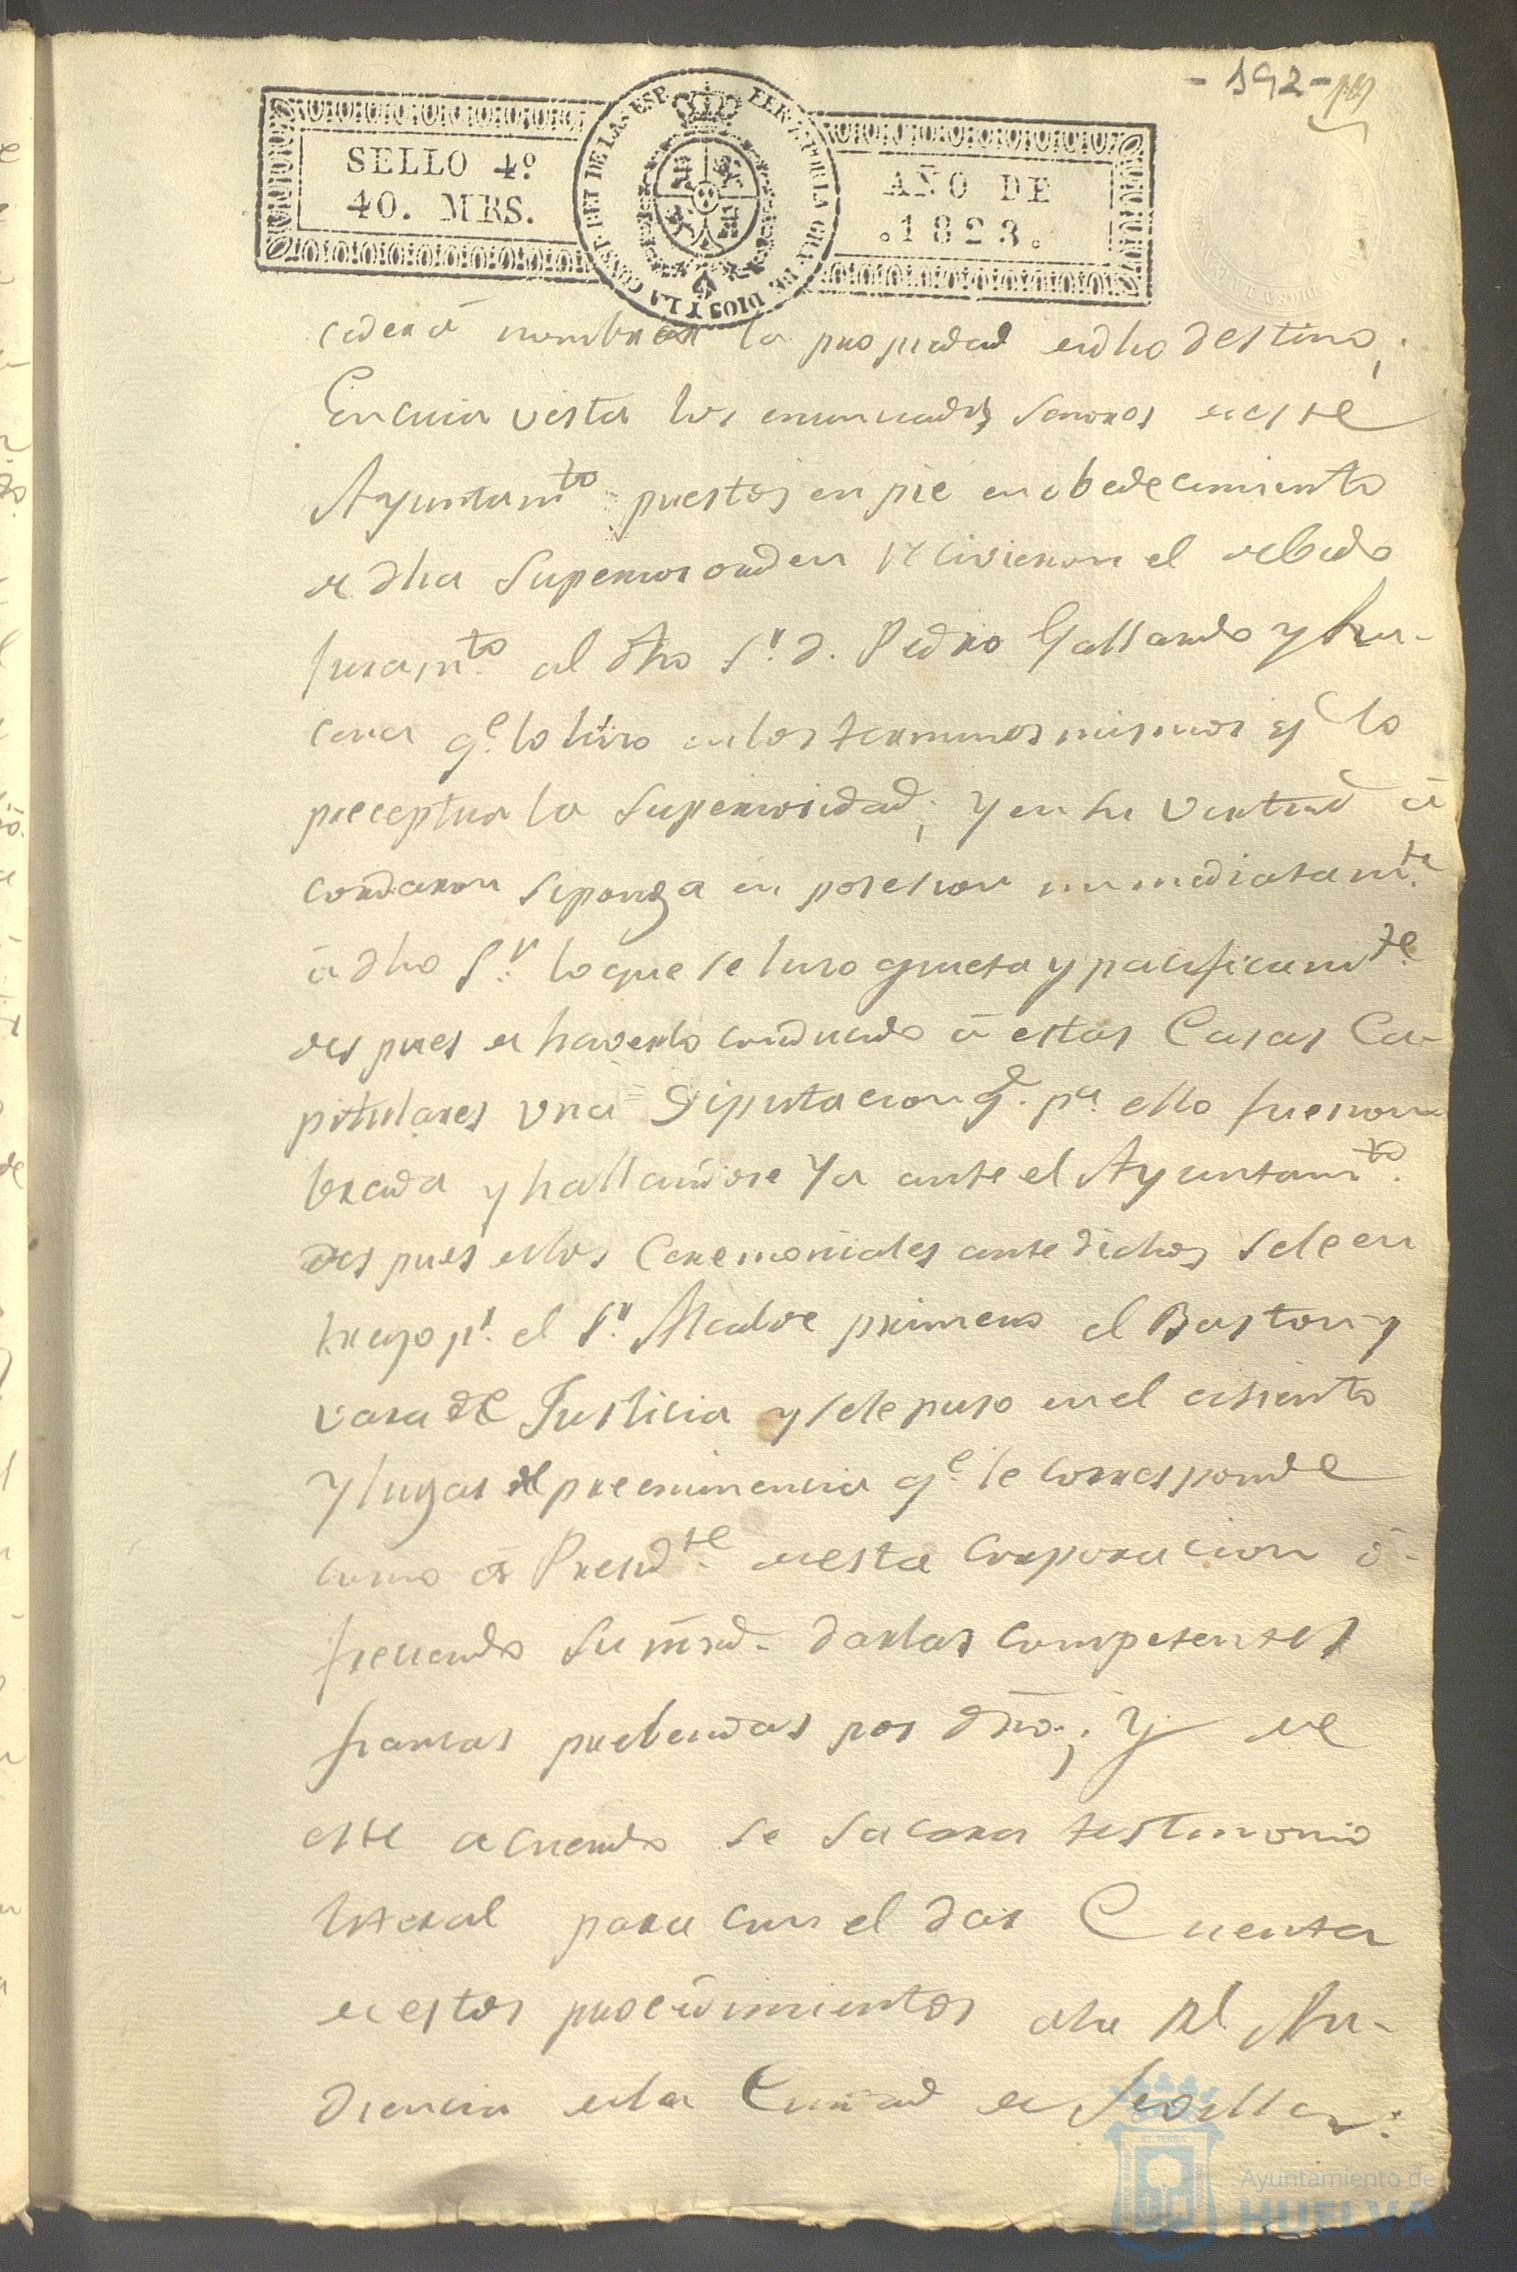 - 192 -
SELLO 4º
40. MRS.
AÑO DE
.1823.
FER. 7º POR LA GRA. DE DIOS Y LA CONST. REI DE LAS ESP.
cidera nombrar la propiedad endho destino;
En cuia vista los enunciados Senores de este
Ayuntamto puestos en pie en obedecimiento
de dha Superior orden recivieron el debido
juramto al dho Sr. D. Pedro Gallardo y
qe. lo hizo en los terminos mismos qe lo
preceptua la Superioridad; y en su virtud á
cordaron seponga en posesion immediatamte
á dho Sr. lo que se hizo quieta y pacificamte
despues de haverlo conducido á estas Casas Ca-
pitulares una Diputacion q.e pa. ello fue nom
brada y hallandose ya ante el Ayuntamto.
despues delos Ceremoniales antedichos sele en
trego pr. el Sr. Alcalde primero el Baston y
vara de Justicia y sele puso en el asiento
y lugar de preeminencia qe. le corresponde
como á Presidte. de esta Corporacion ó-
freciendo su mrd. darlas competentes
fianzas prebenidas por dro.; Y de
este acuerdo se sacara testimonio
literal para con el dar Cuenta
de estos procedimientos ala Rl. Au-
diencia dela Ciudad de Sevilla:
Ayuntamiento de
HUELVA